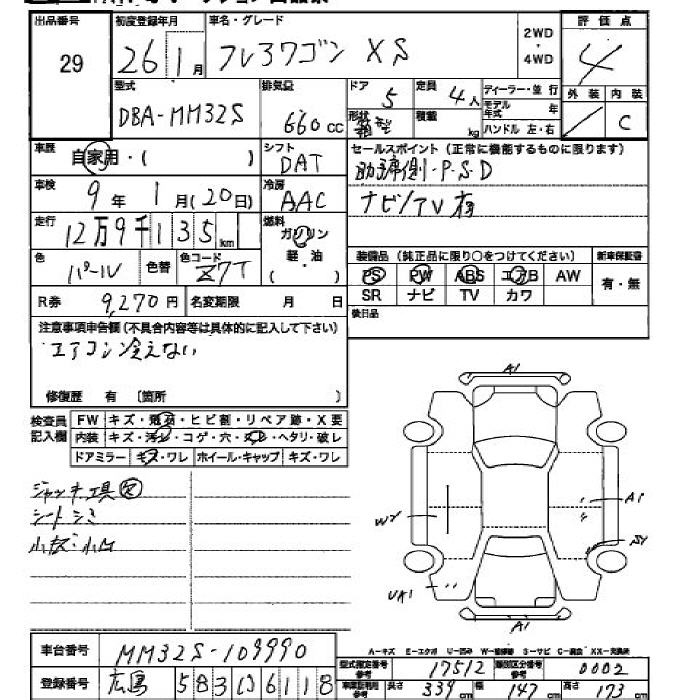 出品番号 29
初度登録年月 26 1月
車名・グレード フレアワゴン XS
2WD・4WD
評価点 4
外装 内装 C
型式 DBA-MM32S
排気量 660cc
ドア 5
定員 4人
形状 箱型
積載 kg
ディーラー・並行
モデル年式 年
ハンドル 左・右
車歴 自家用・( )
シフト DAT
セールスポイント(正常に機能するものに限ります)
助手席側・P.S.D
ナビ/TV有
車検 9年 1月(20日)
冷房 AAC
走行 12万9千135km
燃料 ガソリン 軽・油 ( )
色 パール
色替
色コード Z7T
装備品(純正品に限り○をつけてください)
新車保証書 有・無
PS PW ABS エアB AW
SR ナビ TV カワ
R券 9,270円
名変期限 月 日
後日品
注意事項申告欄(不具合内容等は具体的に記入して下さい)
エアコン冷えない
修復歴 有 〔箇所 〕
検査員記入欄
FW キズ・飛石・ヒビ割・リペア跡・X要
内装 キズ・汚レ・コゲ・穴・スレ・ヘタリ・破レ
ドアミラー キズ・ワレ ホイール・キャップ キズ・ワレ
ジャッキ工具
シートシミ
小傷・小凹
A1
A1
WY
SY
UA1
A1
A-キズ E-エクボ U-凹み W-補修跡 S-サビ C-腐食 XX-交換済
車台番号 MM32S-109990
型式指定番号 参考 17512
類別区分番号 参考 0002
登録番号 広島 583 6118
車検証利用 参考 長さ 339cm 幅 147cm 高さ 173cm